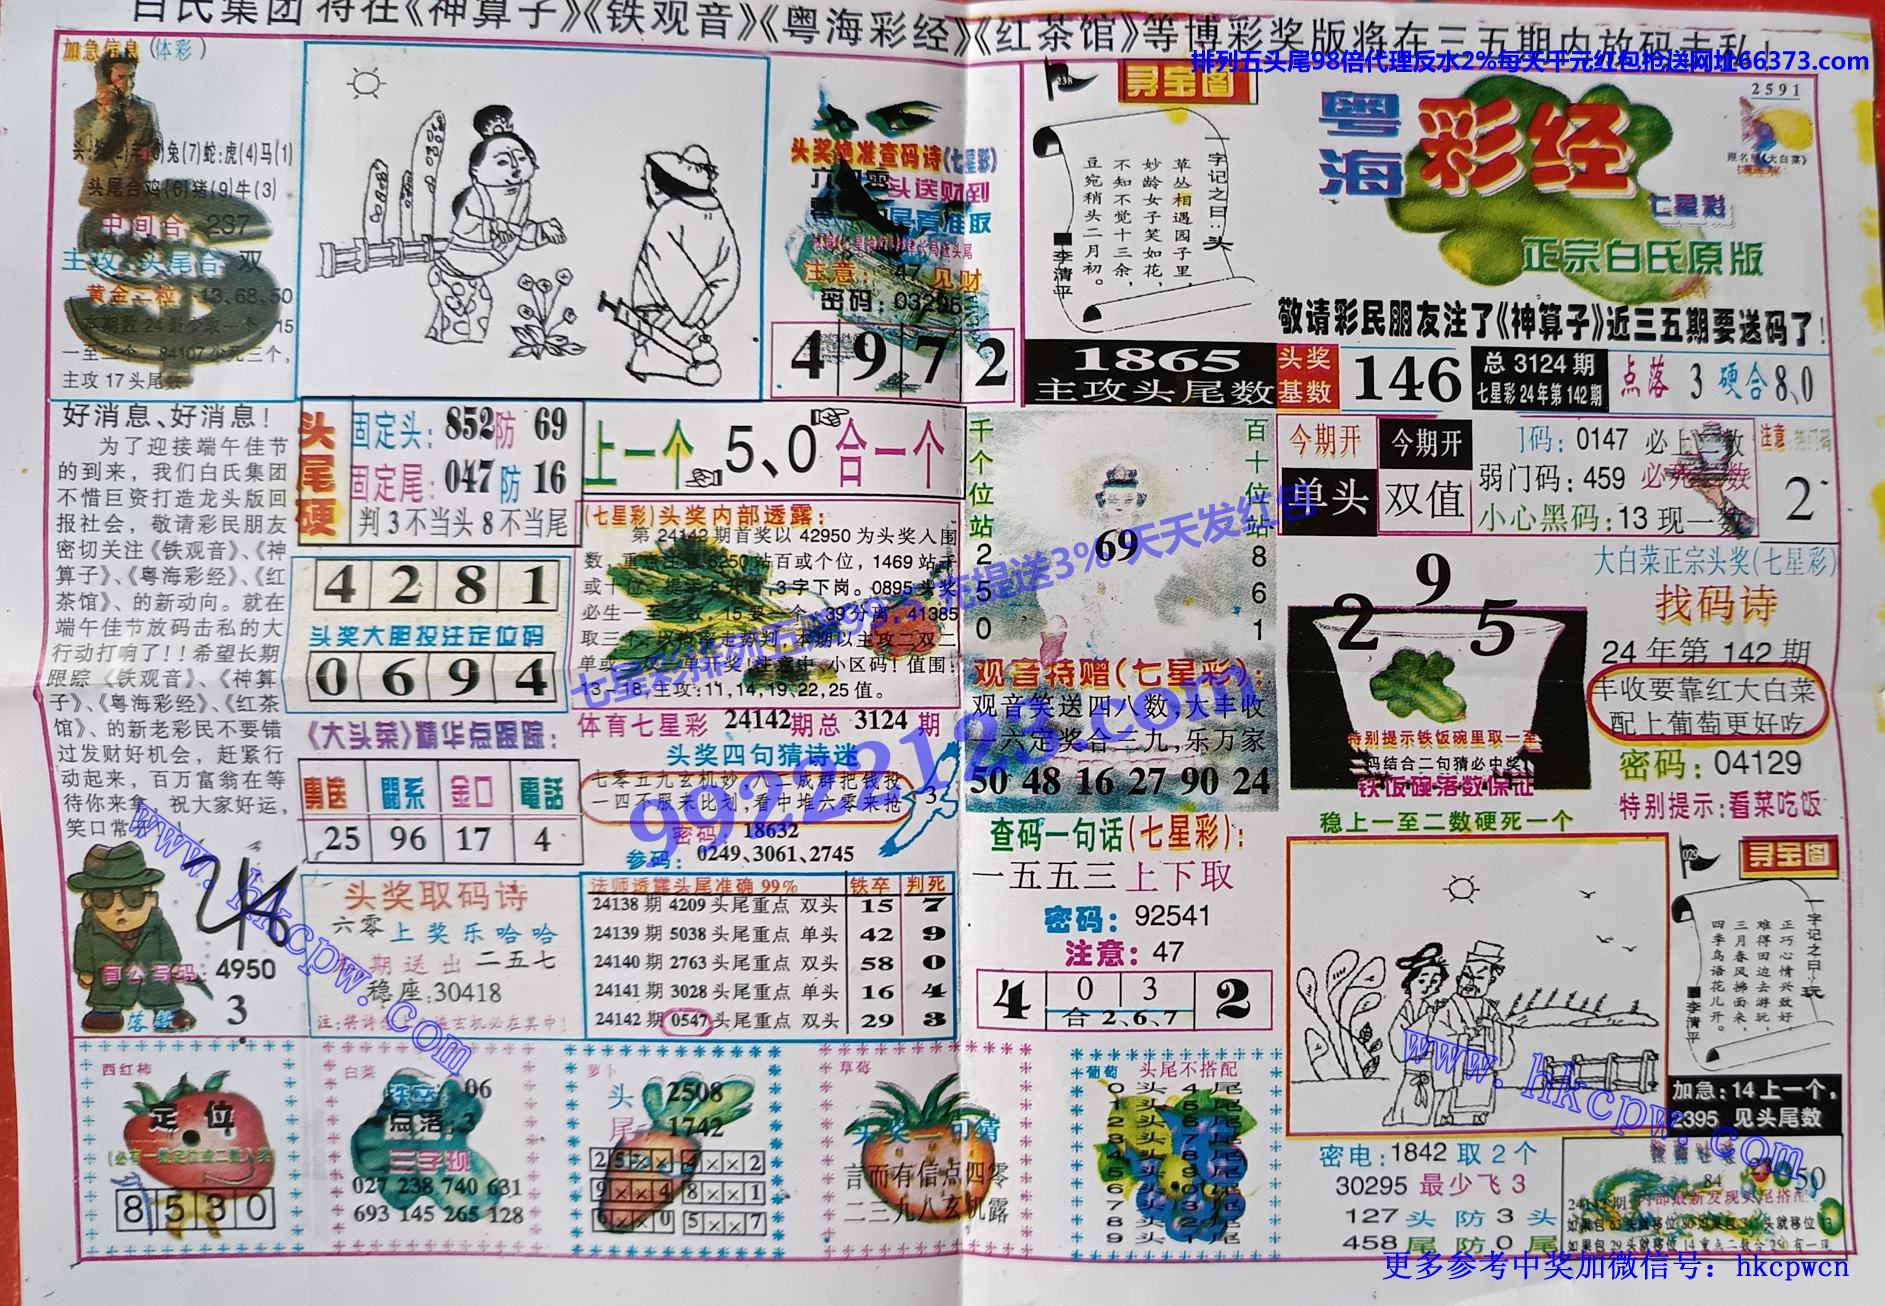 白氏集团 将在《神算子》《铁观音》《粤海彩经》《红茶馆》等博彩奖版将在三五期内放码走私!
排列五头尾98倍代理反水2%每天千元红包抢送网址66373.com
加急信息(体彩)
兔(7)蛇:虎(4)马(1)
头尾合鸡(6)猪(9)牛(3)
中间合 237
主攻:头尾合 双
黄金二位:13、68、50
本期数24最少取一个,15
一至二个,84107少死三个,
主攻17头尾数
头奖绝准查码诗(七星彩)
头送财到
注意:47见财
密码:03295
4972
238
寻宝图
一字记之曰:头
草丛相遇园子里,
妙龄女子笑如花,
不知不觉十三余,
豆宛稍头二月初。
■李清平
粤海
彩经
七星彩
正宗白氏原版
2591
跟名册《大白菜》
敬请彩民朋友注了《神算子》近三五期要送码了!
1865
主攻头尾数
头奖基数
146
总3124期
七星彩24年第142期
点落 3 硬合8、0
好消息、好消息!
为了迎接端午佳节
的到来,我们白氏集团
不惜巨资打造龙头版回
报社会,敬请彩民朋友
密切关注《铁观音》、《神
算子》、《粤海彩经》、《红
茶馆》、的新动向。就在
端午佳节放码击私的大
行动打响了!!希望长期
跟踪《铁观音》、《神算
子》、《粤海彩经》、《红茶
馆》、的新老彩民不要错
过发财好机会,赶紧行
动起来,百万富翁在等
待你来拿,祝大家好运,
笑口常开
头尾硬
固定头:852防 69
固定尾:047防 16
判3不当头8不当尾
上一个 5、0 合一个
4281
头奖大胆投注定位码
0694
(七星彩)头奖内部透露:
第24142期首奖以42950为头奖入围
数,重点注意6250站百或个位,1469站千
或十位,提买8升值,3字下岗。0895头奖
必生一至二数,15要一个,39分离,41385
取三个,本期以主攻二双二
单或 单开奖!注意中、小区码!值围:
13-18,主攻:11,14,19,22,25值。
千个位站2 5 0
百十位站8 6 1
69
观音特赠(七星彩):
观音笑送四八数,大丰收
一六定奖合三九,乐万家
50 48 16 27 90 24
今期开
单头
今期开
双值
门码:0147 必上 数
弱门码:459 必死 数
小心黑码:13现一数
注意:热门码
2
2 9 5
特别提示铁饭碗里取一至
二码结合二句猜必中奖
铁饭碗落数保证
稳上一至二数硬死一个
大白菜正宗头奖(七星彩)
找码诗
24年第142期
丰收要靠红大白菜
配上葡萄更好吃
密码:04129
特别提示:看菜吃饭
《大头菜》精华点跟踪:
勇送 關系 金口 電話
25 96 17 4
体育七星彩 24142期总 3124 期
头奖四句猜诗迷
七零五九玄机妙,八二成群把钱投
一四不服来比划,看中堆六零来抢
3
密码:18632
参码:0249、3061、2745
查码一句话(七星彩):
一五五三上下取
密码:92541
注意:47
4 0 3 2
合 2、6、7
4950
落数:3
头奖取码诗
六零上奖乐哈哈
期送出二五七
稳座:30418
法师透露头尾准确99% 铁卒 判死
24138期 4209 头尾重点 双头 15 7
24139期 5038 头尾重点 单头 42 9
24140期 2763 头尾重点 双头 58 0
24141期 3028 头尾重点 单头 16 4
24142期 0547 头尾重点 双头 29 3
029
寻宝图
一字记之曰:玩
正巧心情兴致好,
难得田边去游玩,
三月春风拂面来,
四季鸟语花儿开。
■李清平
加急:14上一个,
2395 见头尾数
西红柿
定位
(必有一数定位或二数入奖)
8530
白菜
铁卒:06
点落:3
三字现
027 238 740 631
693 145 265 128
萝卜
头:2508
尾:1742
25×× 4××2
9××4 8××1
6××0 5××7
草莓
头奖一句猜
言而有信点四零
二三九八玄机露
葡萄
头尾不搭配
0头4尾
1头5尾
2头6尾
3头7尾
4头8尾
5头9尾
6头0尾
7头1尾
8头2尾
9头3尾
密电:1842 取 2个
30295 最少飞 3
127 头 防 3 头
458 尾 防 0 尾
84
24142期:内部最新发现头尾搭配
七星彩排列五赔99.5死提送3%天天发红包
99222123.com
www.hkcpw.com
www.hkcpw.com
更多参考中奖加微信号:hkcpwcn